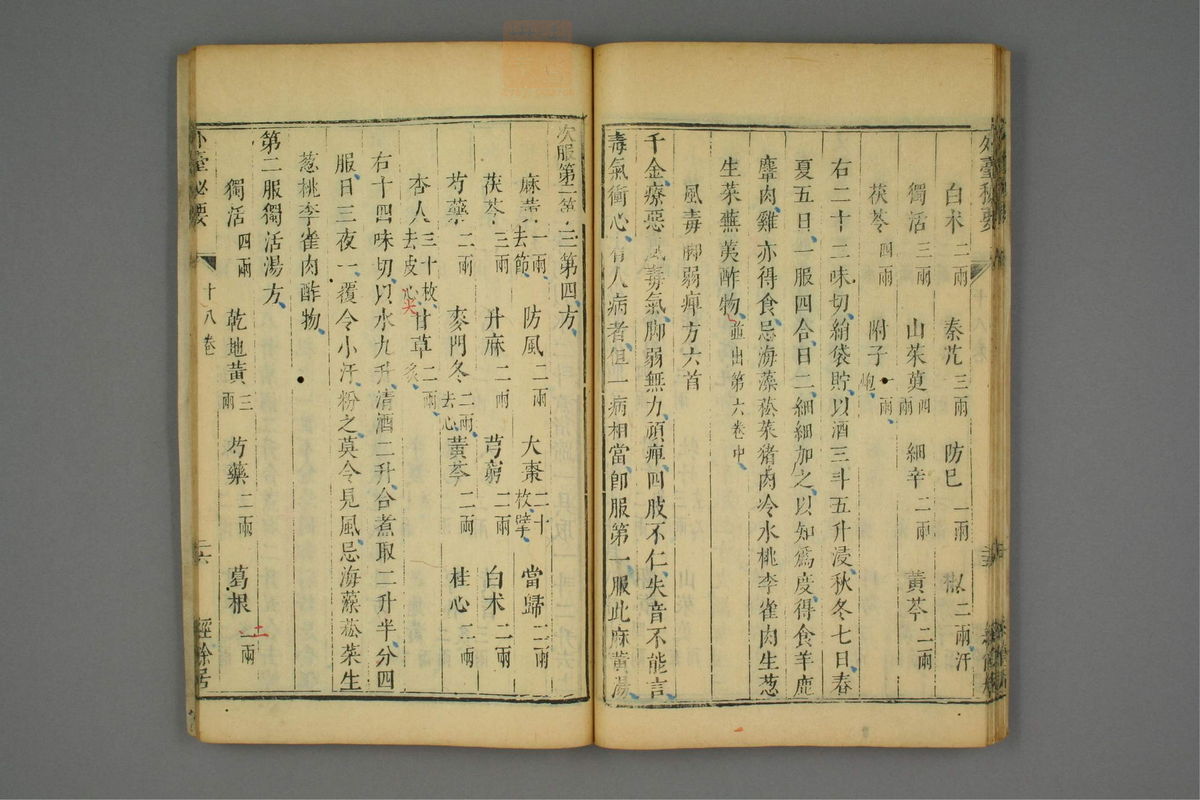 外臺秘要
白朮二兩 秦艽三兩 防巳一兩 椒二兩汗
獨活三兩 山茱萸四兩 細辛二兩 黃芩二兩
茯苓四兩 附子一兩炮
右二十二味切絹袋貯以酒三斗五升浸秋冬七日春
夏五日一服四合日二細細加之以知爲度得食羊鹿
麞肉雞亦得食忌海藻菘菜猪肉冷水桃李雀肉生葱
生菜蕪荑酢物並出第六卷中
風毒脚弱痺方六首
千金療惡風毒氣脚弱無力頑痺四肢不仁失音不能言
毒氣衝心有人病者但一病相當卽服第一服此麻黃湯
次服第二第三第四方
麻黃一兩去節 防風二兩 大棗二十枚擘 當歸二兩
茯苓三兩 升麻二兩 芎藭二兩 白朮二兩
芍藥二兩 麥門冬二兩去心 黃芩二兩 桂心二兩
杏人三十枚去皮尖 甘草二兩炙
右十四味切以水九升清酒二升合煮取二升半分四
服日三夜一覆令小汗粉之莫令見風忌海藻菘菜生
葱桃李雀肉酢物
第二服獨活湯方
獨活四兩 乾地黃三兩 芍藥二兩 葛根二兩
外臺祕要 十八卷 二六 經餘居